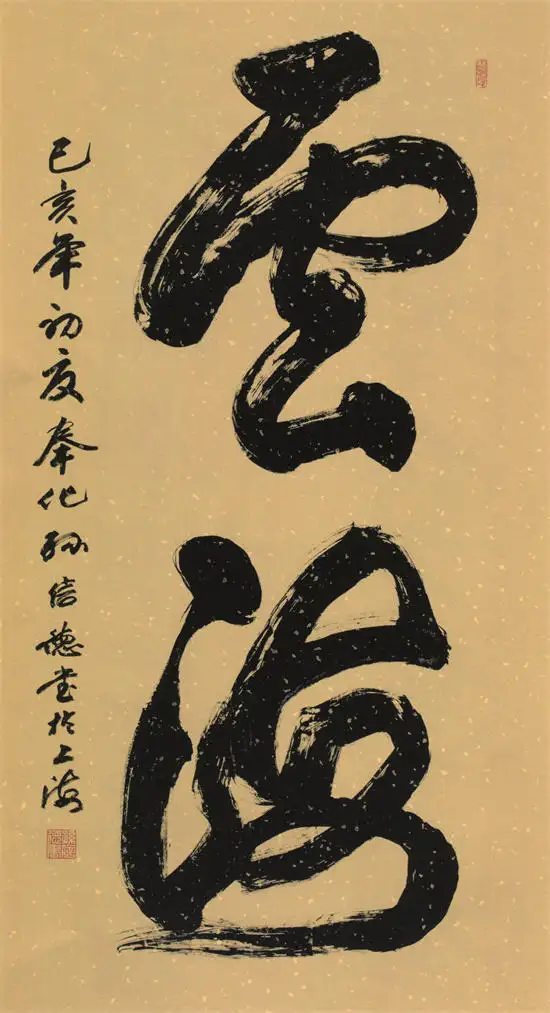 雲海
己亥年初夏奉化孫信德書於上海